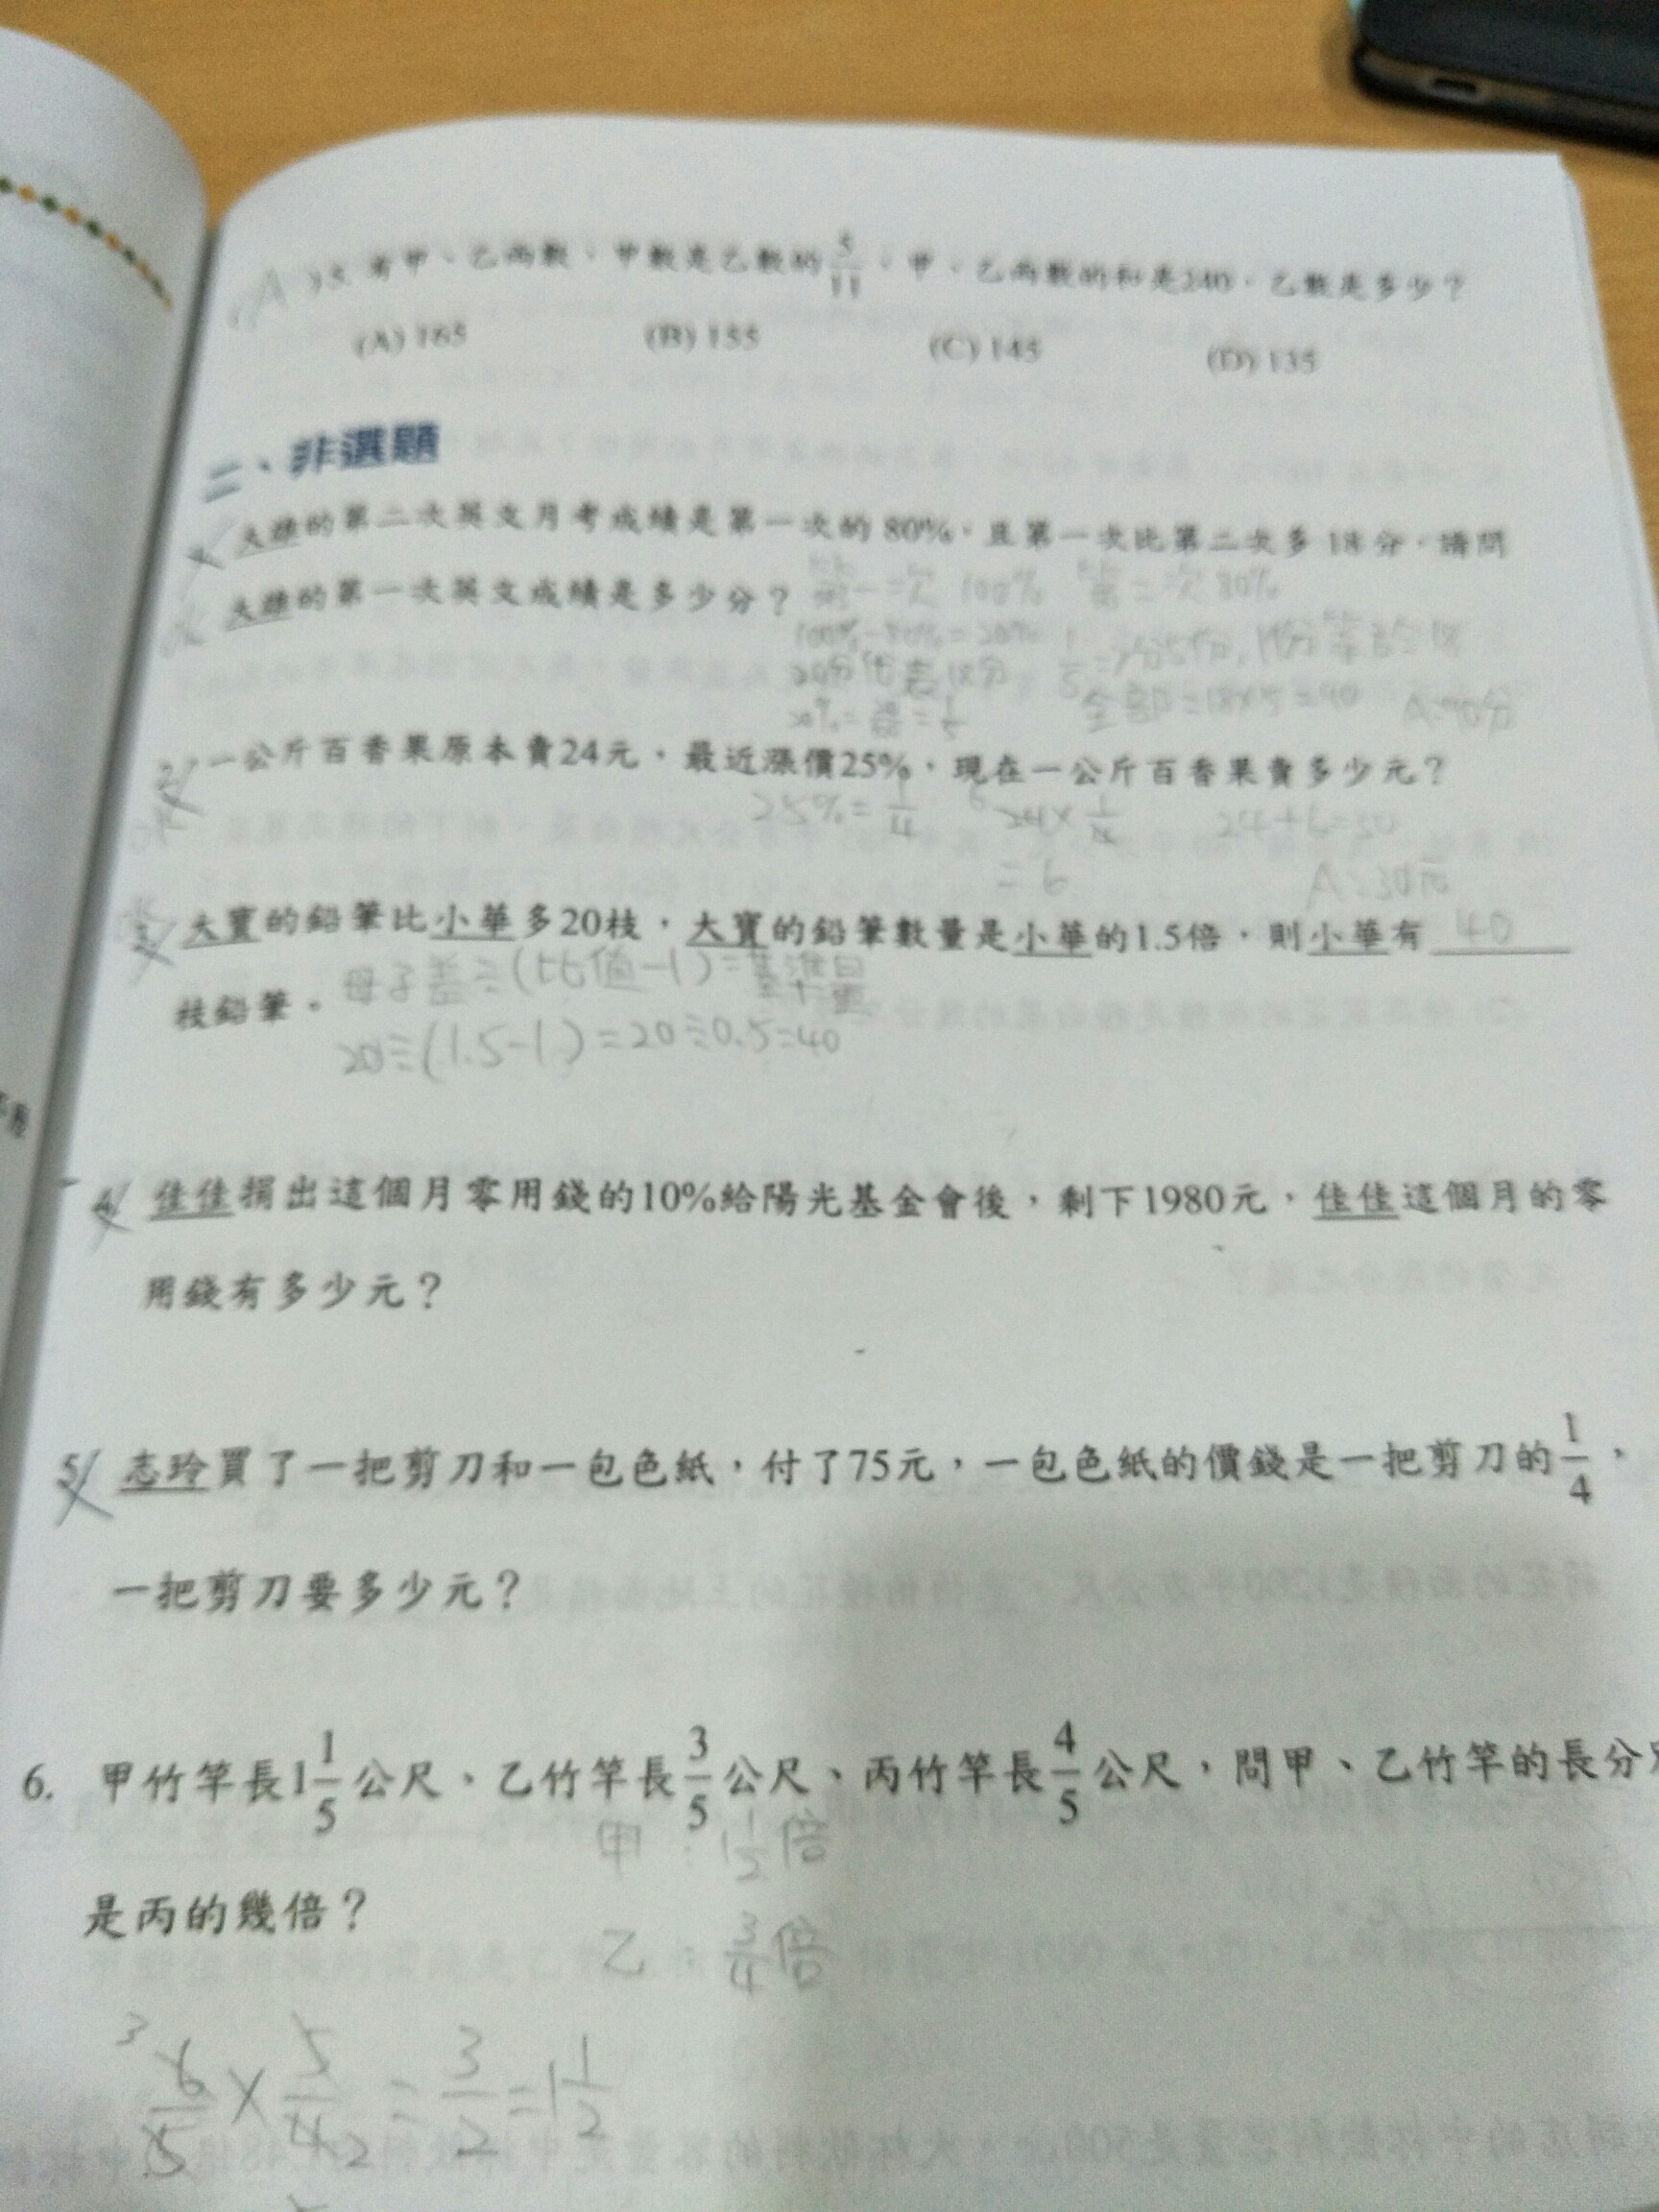 A
若甲、乙兩數,甲數是乙數的5/11,甲、乙兩數的和是240,乙數是多少?
(A) 165 (B) 155 (C) 145 (D) 135
二、非選題
大雄的第二次英文月考成績是第一次的 80%,且第一次比第二次多 18 分,請問
大雄的第一次英文成績是多少分?
第一次 100% 第二次 80%
100%-80%=20%
20分代表18分
全部=18×5=90
2. 一公斤百香果原本賣24元,最近漲價25%,現在一公斤百香果賣多少元?
25%=1/4 24×1/4 24+6=30
=6 A:30元
3. 大寶的鉛筆比小華多20枝,大寶的鉛筆數量是小華的1.5倍,則小華有 40
枝鉛筆。
母子差÷(比值-1)=基準量
20÷(1.5-1)=20÷0.5=40
4. 佳佳捐出這個月零用錢的10%給陽光基金會後,剩下1980元,佳佳這個月的零
用錢有多少元?
5. 志玲買了一把剪刀和一包色紙,付了75元,一包色紙的價錢是一把剪刀的1/4,
一把剪刀要多少元?
6. 甲竹竿長1 1/5公尺、乙竹竿長3/5公尺、丙竹竿長4/5公尺,問甲、乙竹竿的長分
甲:1 1/2倍
是丙的幾倍?
乙:3/4倍
3 6/5×5/4 2=3/2=1 1/2